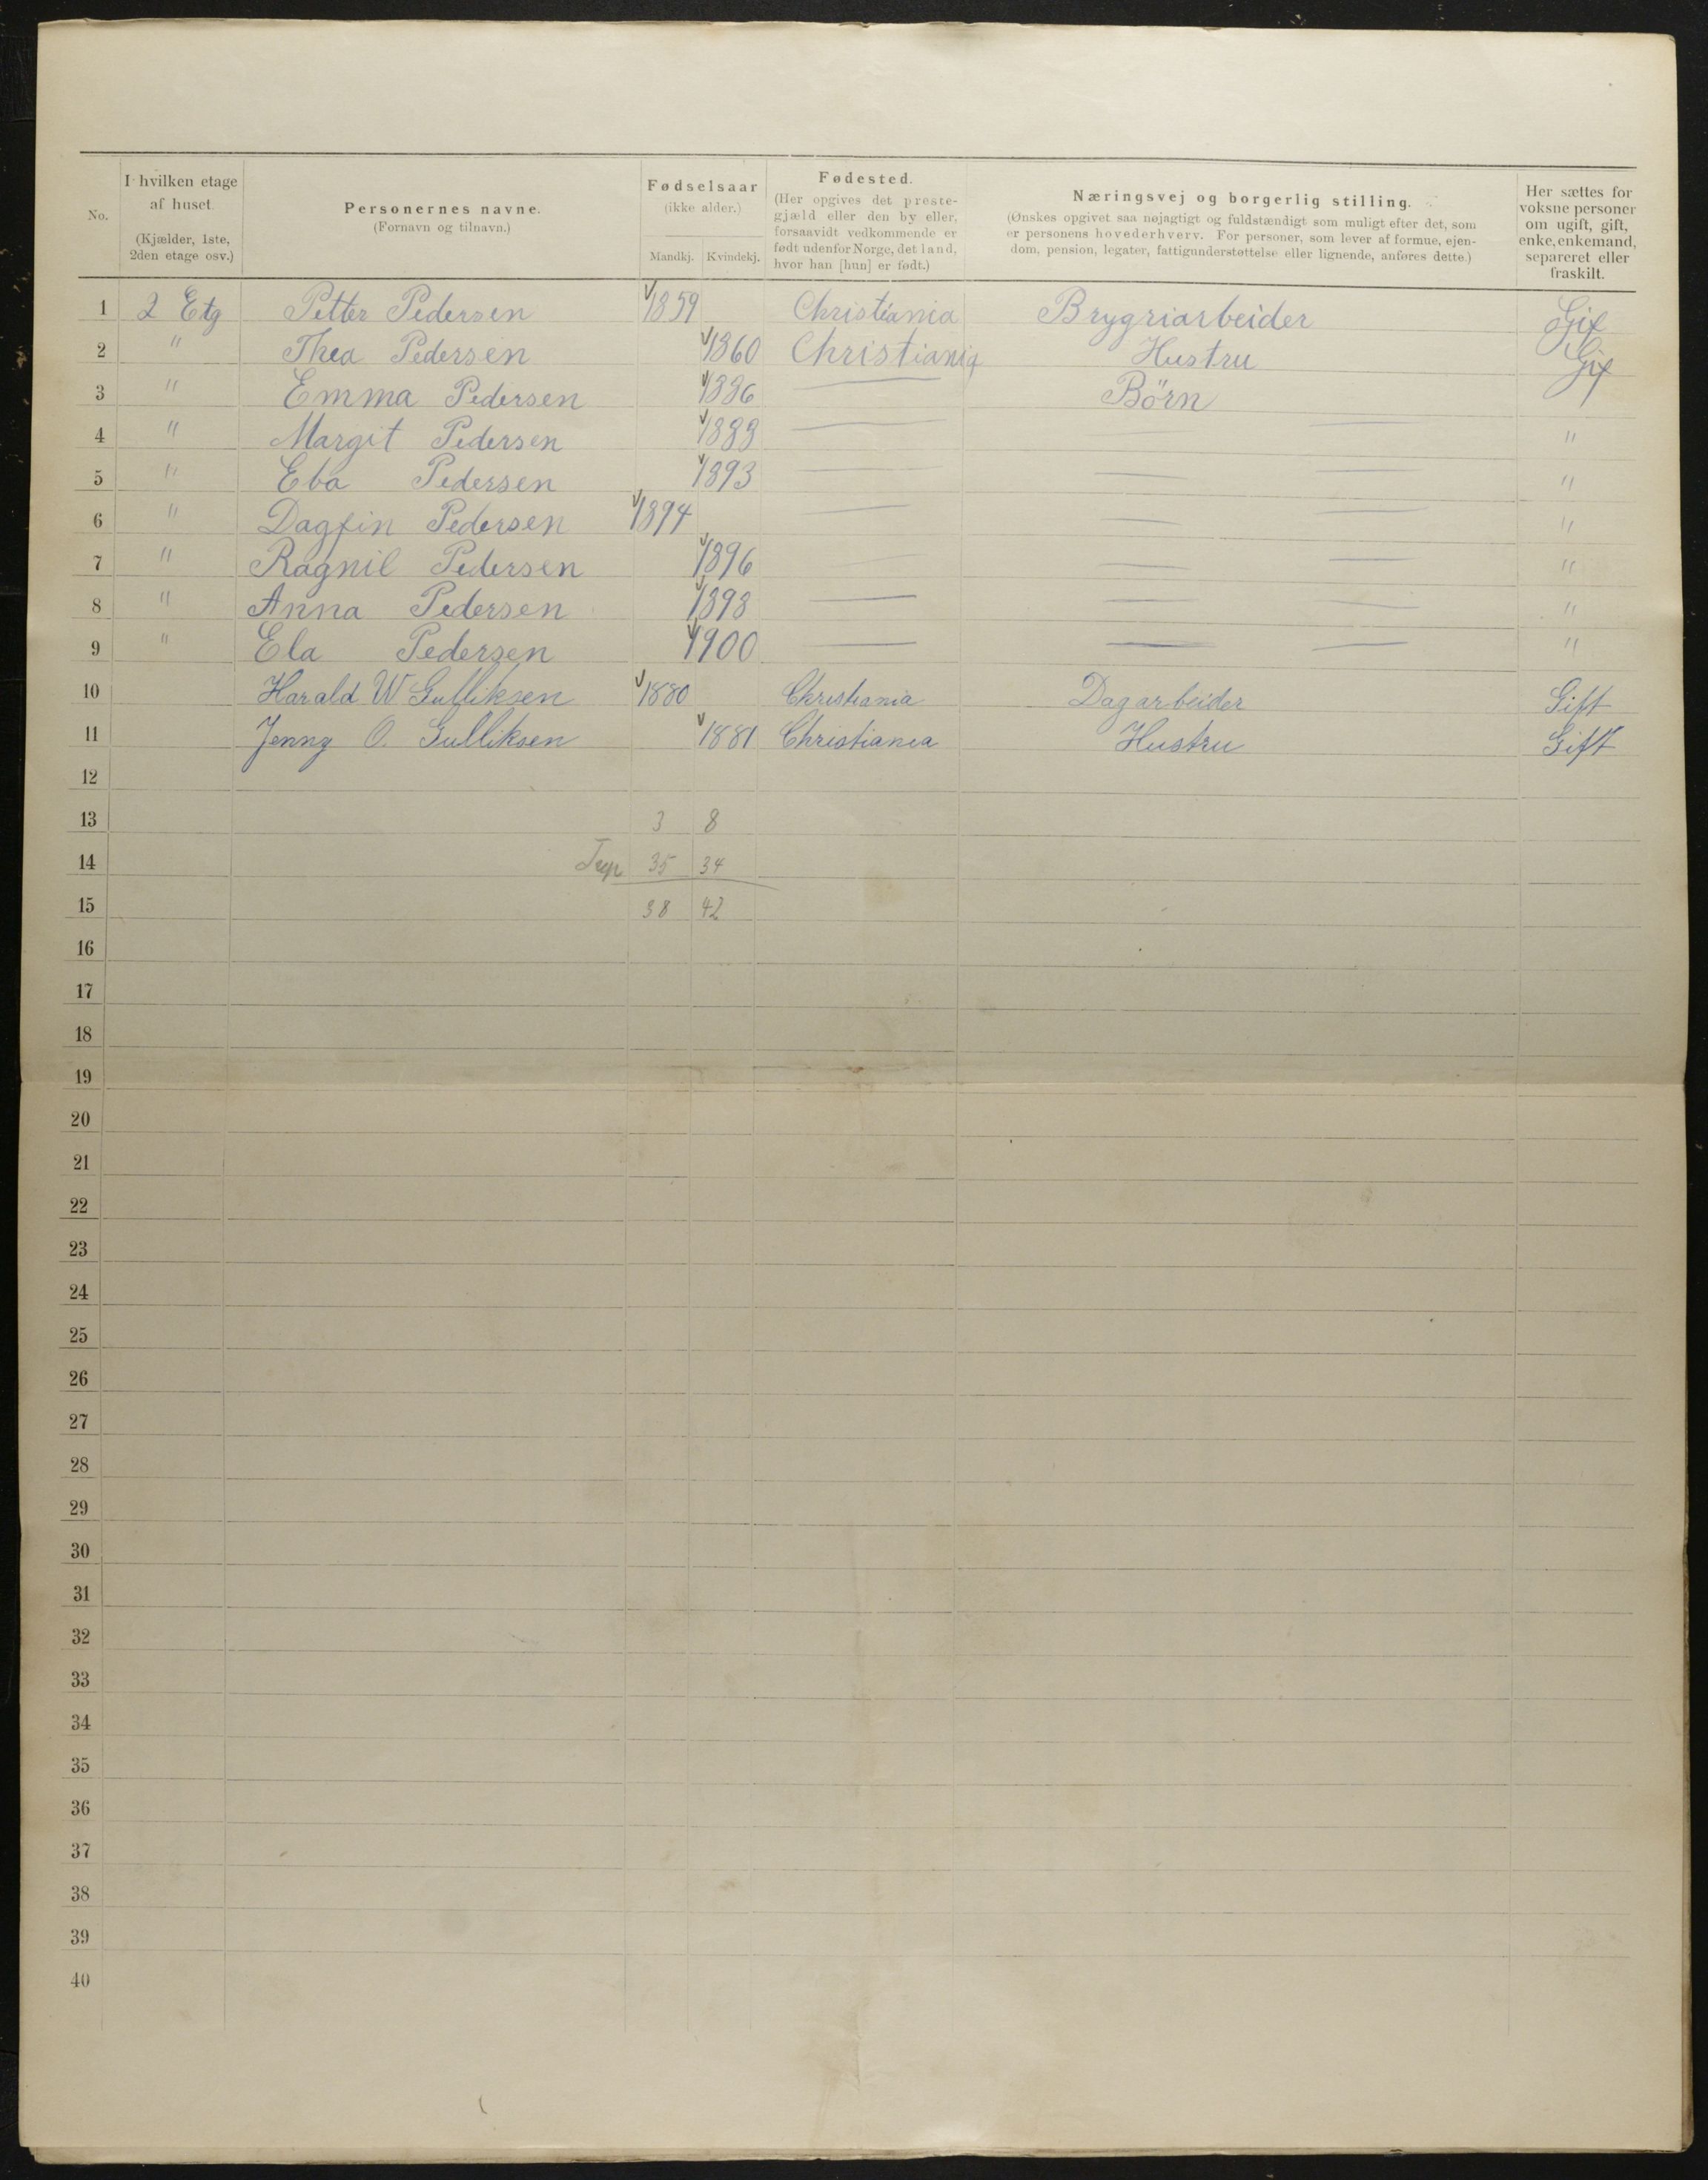 No. | I hvilken etage af huset. (Kjælder, 1ste, 2den etage osv.) | Personernes navne. (Fornavn og tilnavn.) | Fødselsaar (ikke alder.) Mandkj. | Kvindekj. | Fødested. (Her opgives det prestegjæld eller den by eller, forsaavidt vedkommende er født udenfor Norge, det land, hvor han [hun] er født.) | Næringsvej og borgerlig stilling. (Ønskes opgivet saa nøjagtigt og fuldstændigt som muligt efter det, som er personens hovederhverv. For personer, som lever af formue, ejendom, pension, legater, fattigunderstøttelse eller lignende, anføres dette.) | Her sættes for voksne personer om ugift, gift, enke, enkemand, separeret eller fraskilt.
1 2 Etg Petter Pedersen 1859 Christiania Brygriarbeider Gif
2 " Thea Pedersen 1860 Christiania Hustru Gif
3 " Emma Pedersen 1886 — Børn
4 " Margit Pedersen 1888 — — "
5 " Eba Pedersen 1893 — — — "
6 " Dagfin Pedersen 1894 — — — "
7 " Ragnil Pedersen 1896 — — — "
8 " Anna Pedersen 1898 — — — "
9 " Ela Pedersen 1900 — — — "
10 Harald W Gulliksen 1880 Christiania Dagarbeider Gift
11 Jenny O. Gulliksen 1881 Christiania Hustru Gift
12
13 3 8
14 35 34
15 38 42
16
17
18
19
20
21
22
23
24
25
26
27
28
29
30
31
32
33
34
35
36
37
38
39
40